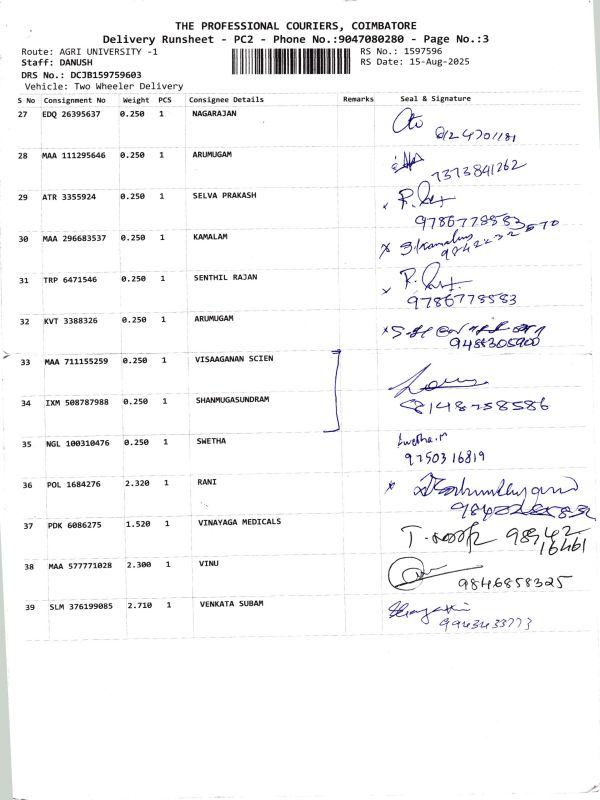 THE PROFESSIONAL COURIERS, COIMBATORE
Delivery Runsheet - PC2 - Phone No.:9047080280 - Page No.:3
Route: AGRI UNIVERSITY -1 RS No.: 1597596
Staff: DANUSH RS Date: 15-Aug-2025
DRS No.: DCJB159759603
Vehicle: Two Wheeler Delivery
S No Consignment No Weight PCS Consignee Details Remarks Seal & Signature
27 EDQ 26395637 0.250 1 NAGARAJAN
28 MAA 111295646 0.250 1 ARUMUGAM
7373841262
29 ATR 3355924 0.250 1 SELVA PRAKASH
9786778583
30 MAA 296683537 0.250 1 KAMALAM
31 TRP 6471546 0.250 1 SENTHIL RAJAN
9786778583
32 KVT 3388326 0.250 1 ARUMUGAM
9488305900
33 MAA 711155259 0.250 1 VISAAGANAN SCIEN
34 IXM 508787988 0.250 1 SHANMUGASUNDRAM
8148758586
35 NGL 100310476 0.250 1 SWETHA Swetha.r
9750316819
36 POL 1684276 2.320 1 RANI
37 PDK 6086275 1.520 1 VINAYAGA MEDICALS 98942
16461
38 MAA 577771028 2.300 1 VINU
9846858325
39 SLM 376199085 2.710 1 VENKATA SUBAM
9943433773